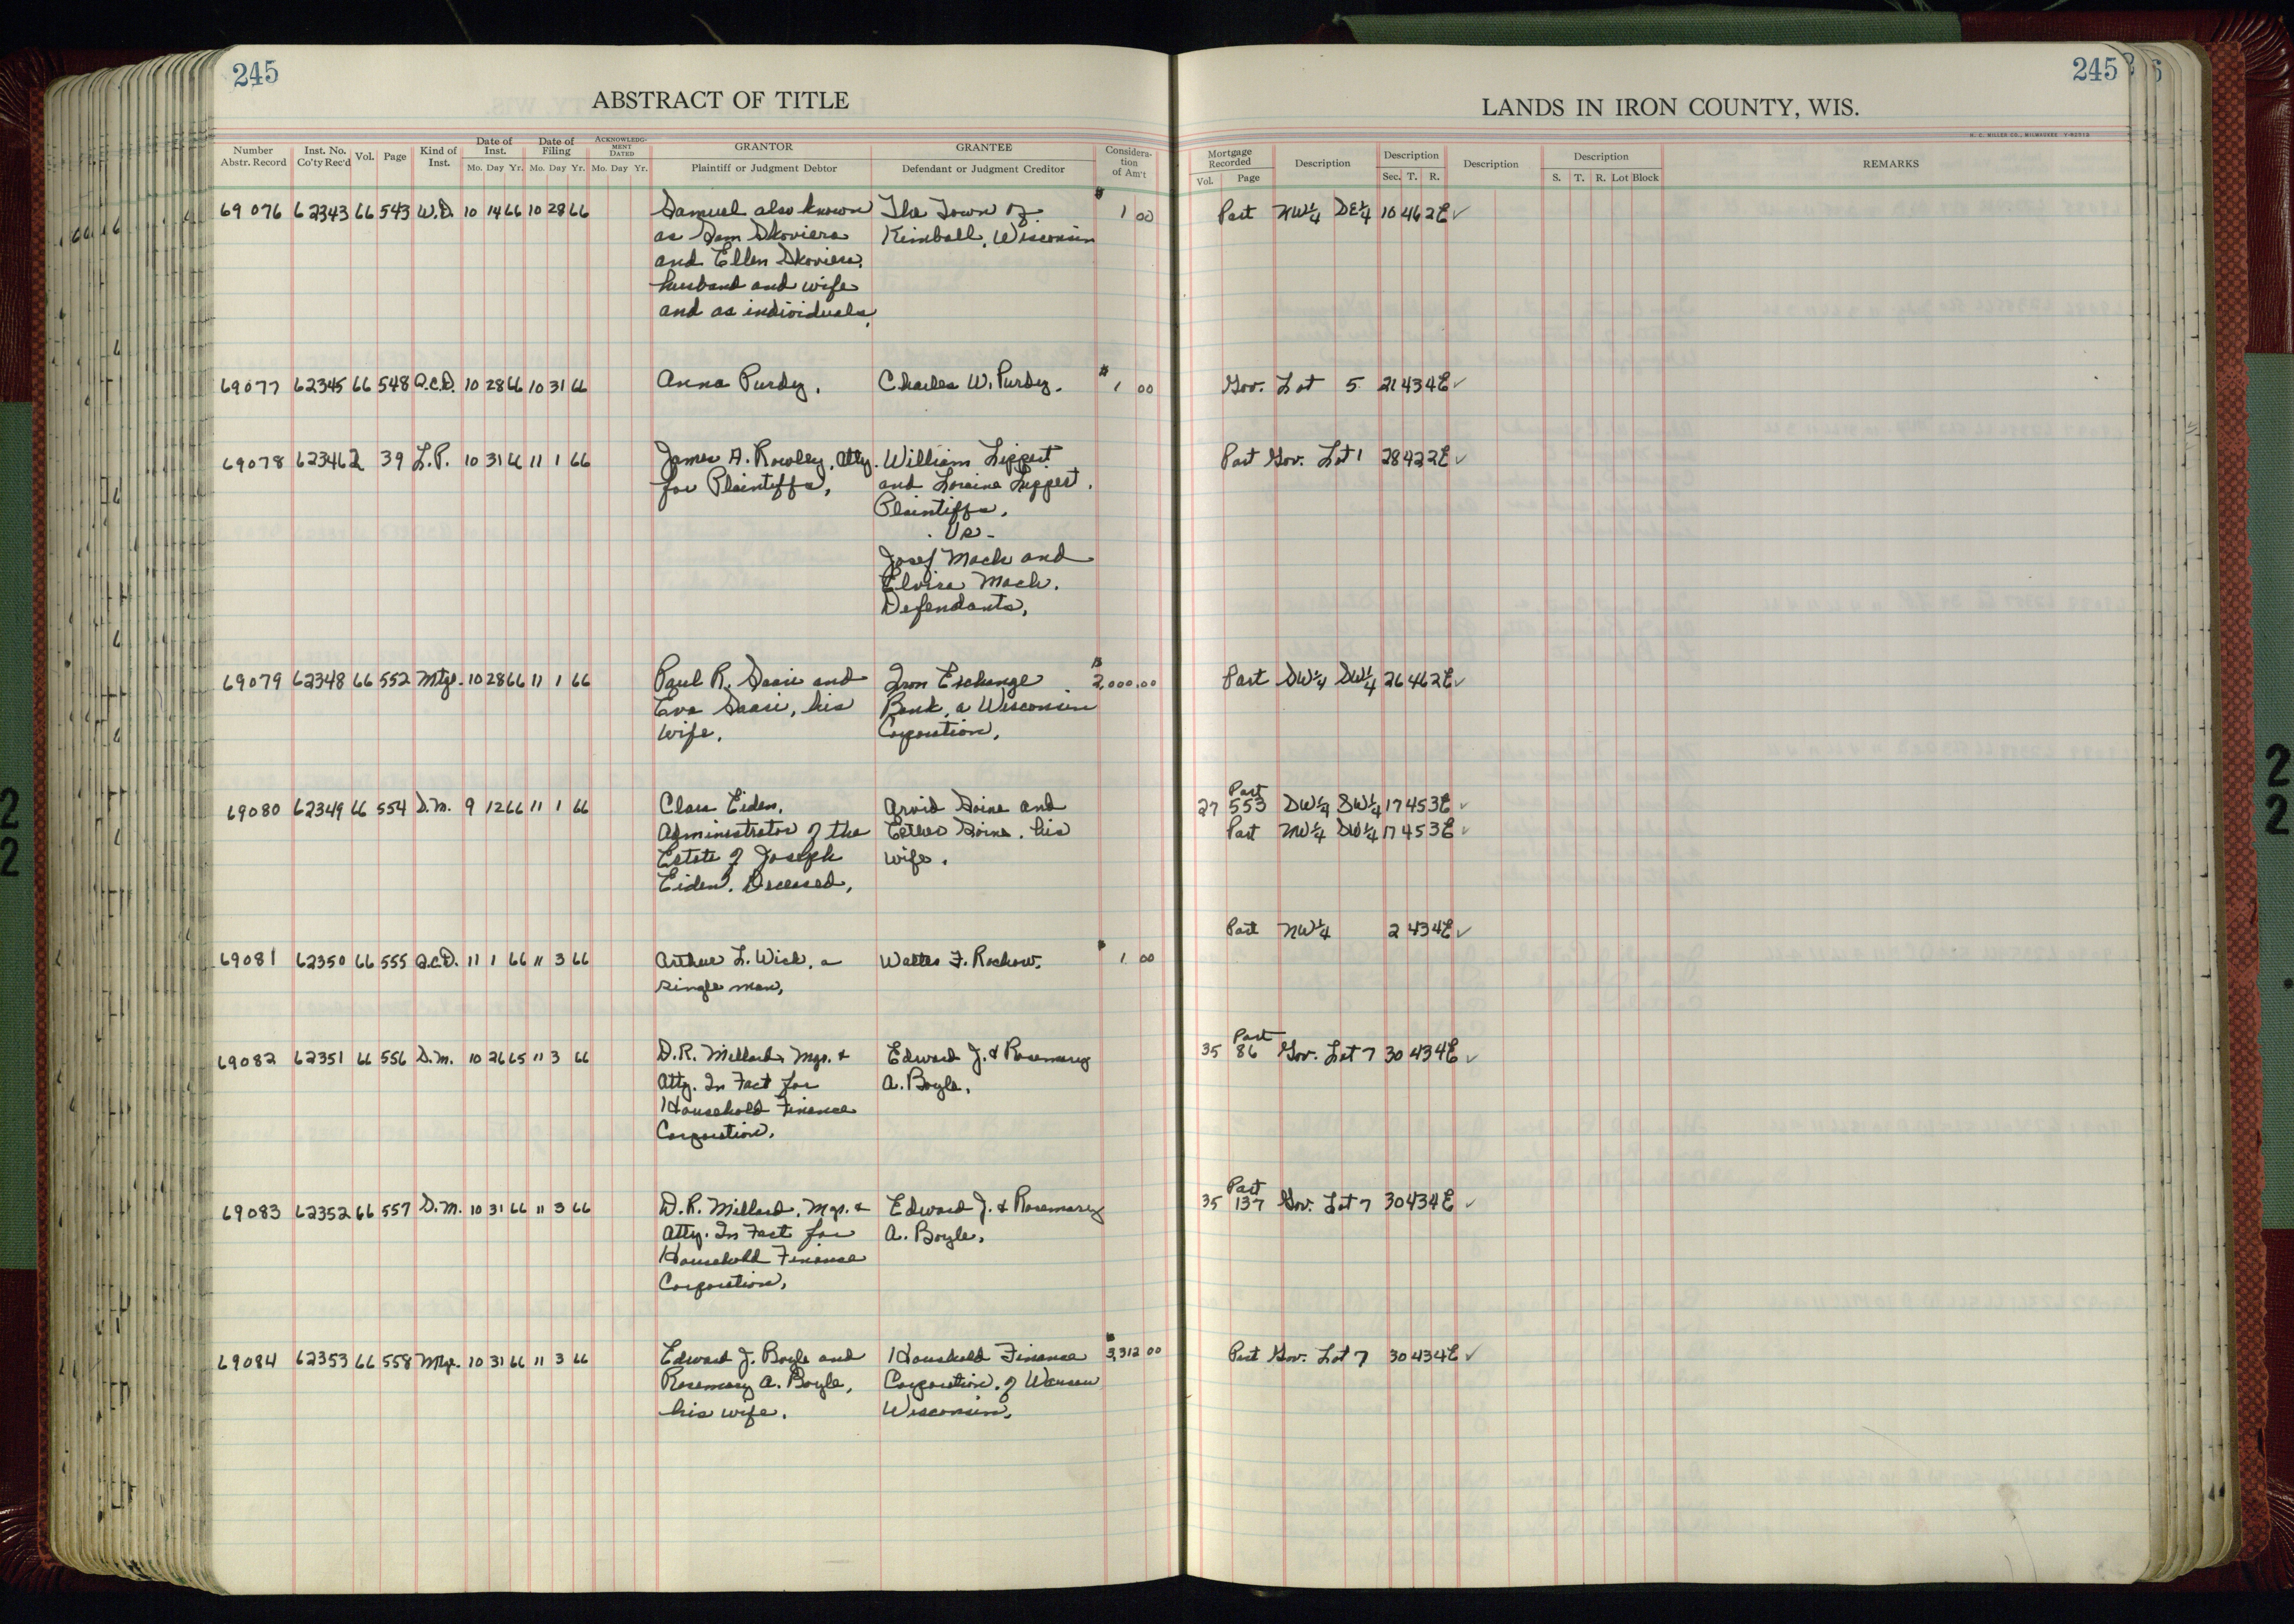 245
ABSTRACT OF TITLE
Number Abstr. Record Inst. No. Co'ty Rec'd Vol. Page Kind of Inst. Date of Inst. Mo. Day Yr. Date of Filing Mo. Day Yr. ACKNOWLEDGMENT DATED Mo. Day Yr. GRANTOR Plaintiff or Judgment Debtor GRANTEE Defendant or Judgment Creditor Consideration of Am't
69076 62343 66 543 W.D. 10 14 66 10 28 66 Samuel also known The Town of $ 1 00
as Sam Skoviera Kimball, Wisconsin
and Ellen Skoviera,
husband and wife
and as individuals,
69077 62345 66 548 Q.C.D. 10 28 66 10 31 66 Anna Purdy, Charles W. Purdy. $ 1 00
69078 62346 2 39 L.P. 10 31 66 11 1 66 James A. Rowley, Atty. William Lippert
for Plaintiffs, and Loraine Lippert,
Plaintiffs,
-Vs-
Josef Mach and
Elvira Mach,
Defendants,
69079 62348 66 552 Mtge. 10 28 66 11 1 66 Paul R. Saari and Iron Exchange $ 2,000.00
Eva Saari, his Bank, a Wisconsin
wife, Corporation,
69080 62349 66 554 S.M. 9 12 66 11 1 66 Clara Eiden, Arvid Soine and
Administrator of the Esther Soine, his
Estate of Joseph wife,
Eiden, Deceased,
69081 62350 66 555 Q.C.D. 11 1 66 11 3 66 Arthur L. Wick, a Walter F. Rochow, $ 1 00
single man,
69082 62351 66 556 S.M. 10 26 65 11 3 66 D.R. Millard, Mgr. & Edward J. & Rosemary
Atty. In Fact for A. Boyle,
Household Finance
Corporation,
69083 62352 66 557 S.M. 10 31 66 11 3 66 D.R. Millard, Mgr. & Edward J. & Rosemary
Atty. In Fact for A. Boyle,
Household Finance
Corporation,
69084 62353 66 558 Mtge. 10 31 66 11 3 66 Edward J. Boyle and Household Finance $ 3,312 00
Rosemary A. Boyle, Corporation, of Wausau
his wife, Wisconsin,
245
LANDS IN IRON COUNTY, WIS.
H. C. MILLER CO., MILWAUKEE
Mortgage Recorded Vol. Page Description Description Sec. T. R. Description Description S. T. R. Lot Block REMARKS
Part NW¼ SE¼ 10 46 2E ✓
Gov. Lot 5 21 43 4E ✓
Part Gov. Lot 1 28 42 2E ✓
Part SW¼ SW¼ 26 46 2E ✓
Part
27 553 SW¼ SW¼ 17 45 3E ✓
Part NW¼ SW¼ 17 45 3E ✓
Part NW¼ 2 43 4E ✓
Part
35 86 Gov. Lot 7 30 43 4E ✓
Part
35 137 Gov. Lot 7 30 43 4E ✓
Part Gov. Lot 7 30 43 4E ✓
2
2
2
2